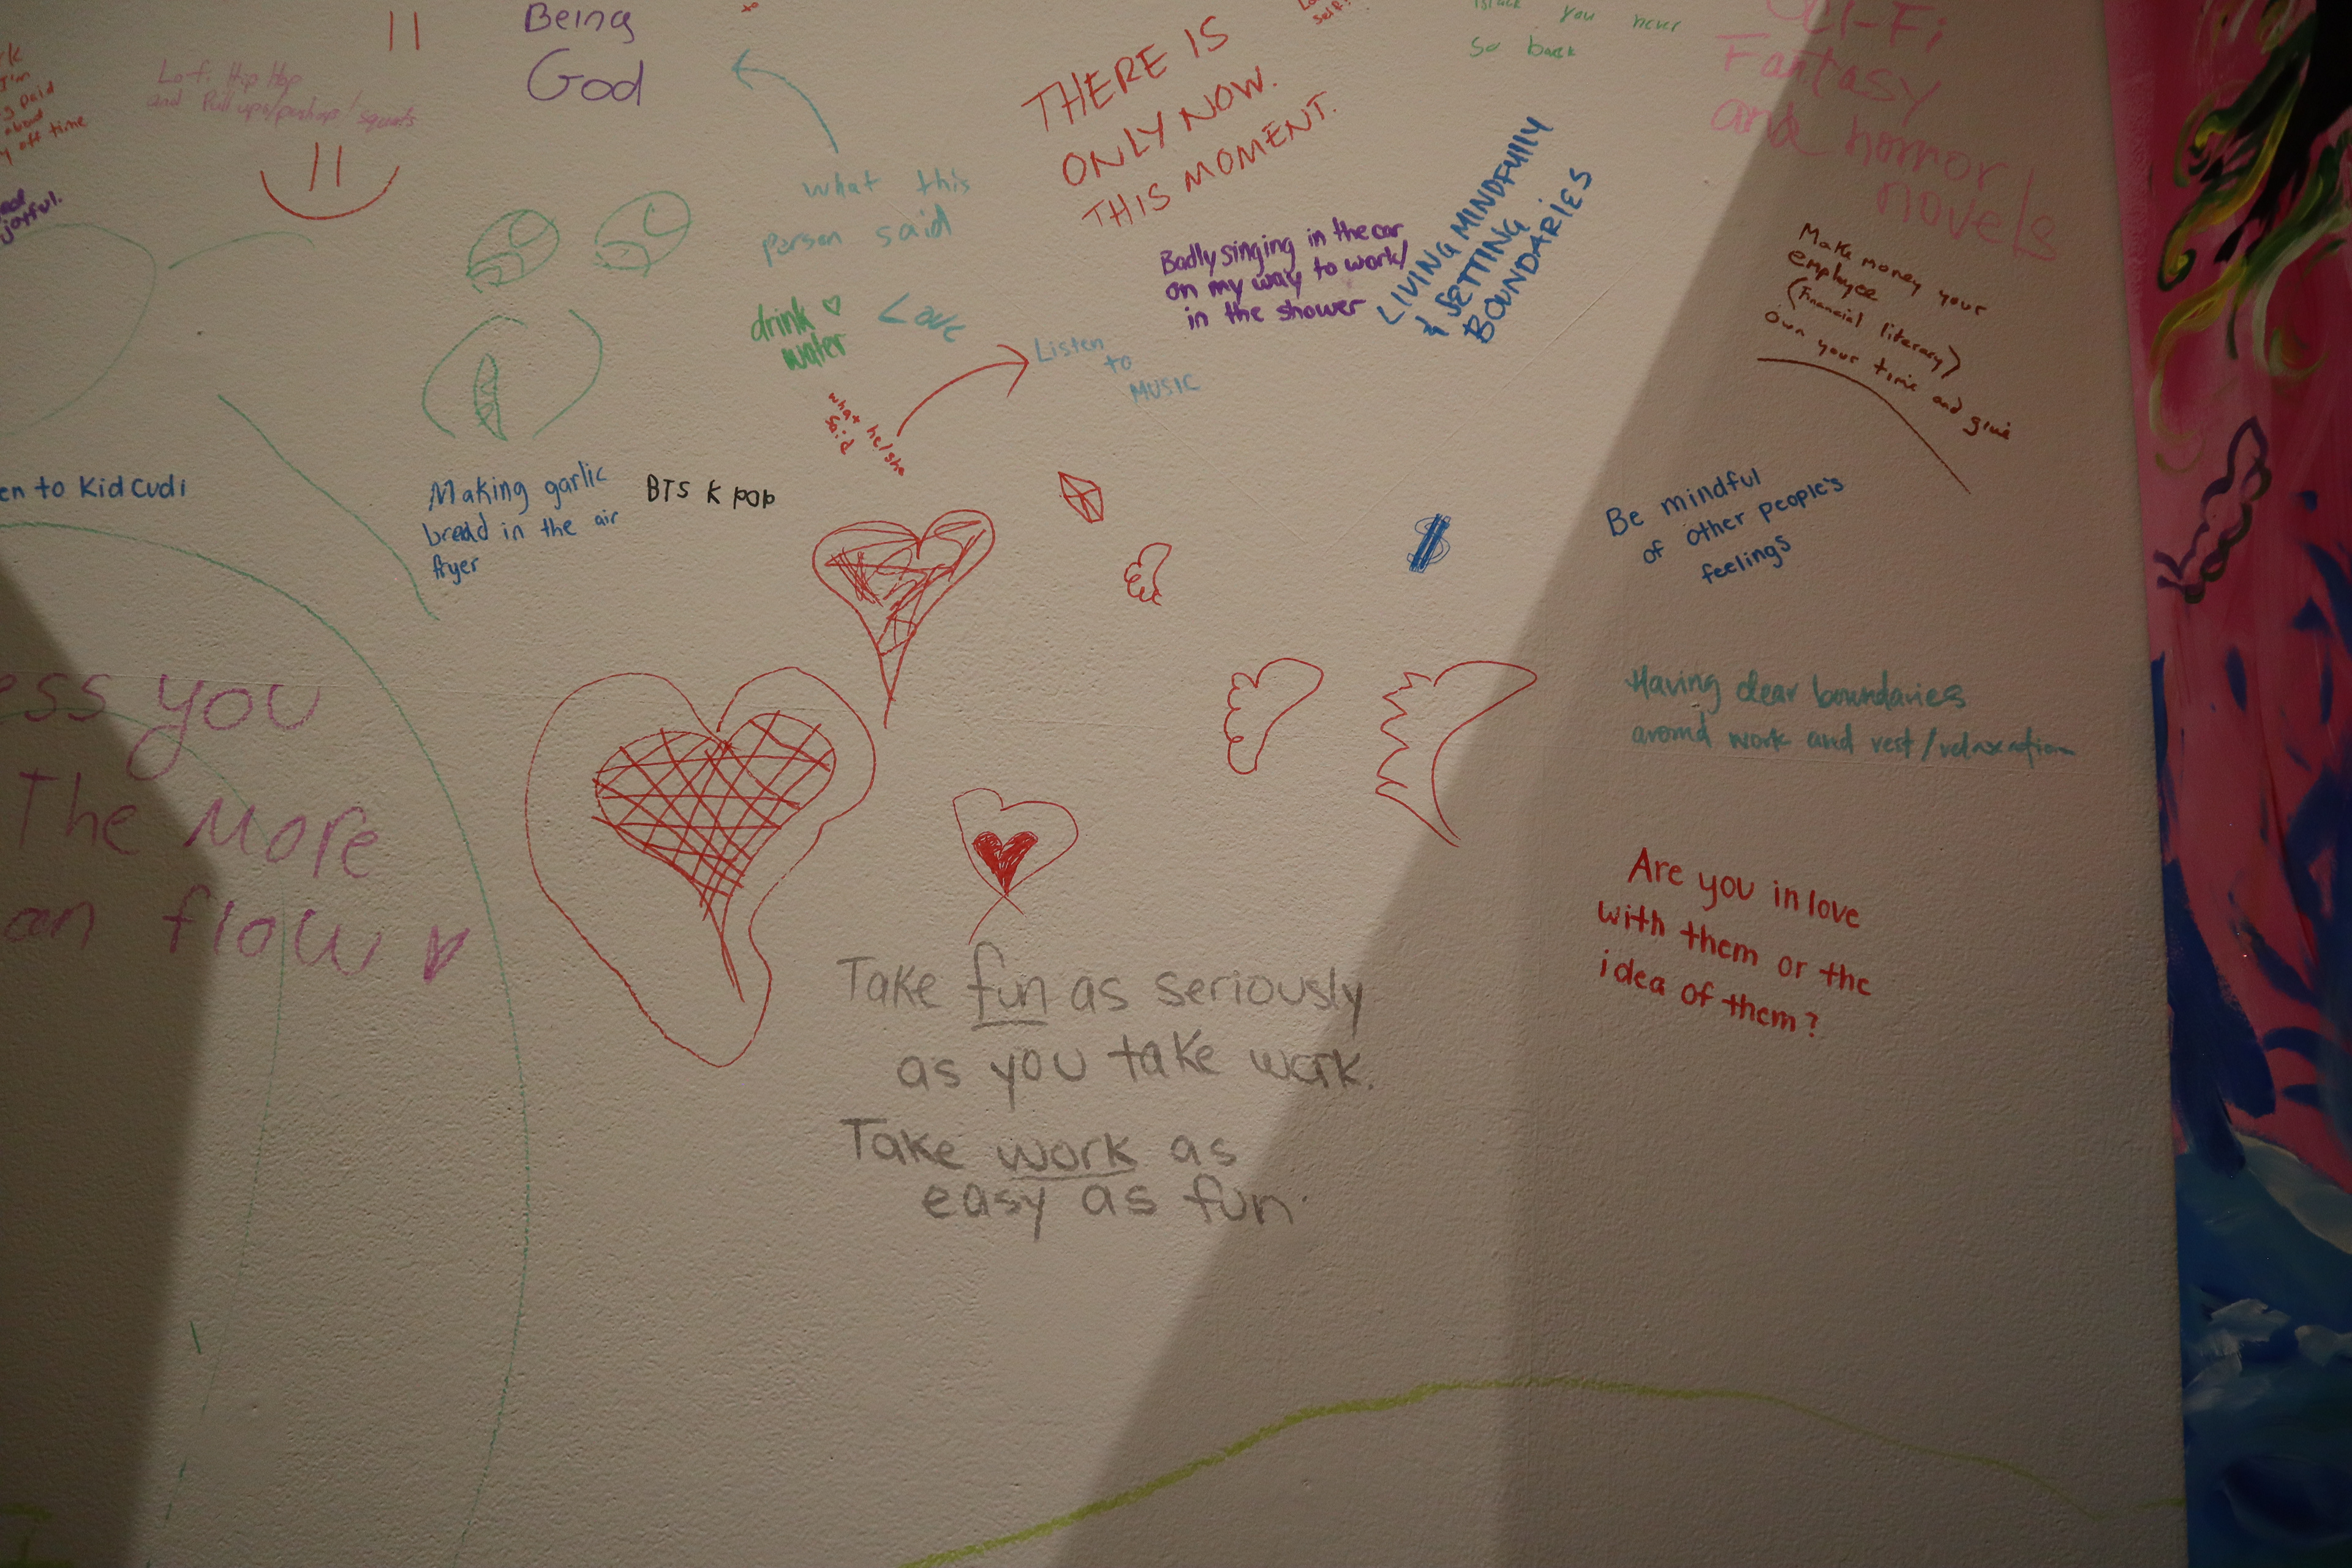 Being
God
Lo-fi Hip Hop
and Pull ups/pushups/squats
I'm
paid
about
off time
joyful.
THERE IS
ONLY NOW.
THIS MOMENT.
you never
so back
Sci-Fi
Fantasy
and horror
novels
what this
person said
Badly singing in the car
on my way to work/
in the shower
LIVING MINDFULLY
& SETTING
BOUNDARIES
Make money your
employee
(Financial literacy)
own your time and give
drink
water
Love
Listen
to
MUSIC
what he/she
said
en to Kid Cudi
Making garlic
bread in the air
fryer
BTS K pop
$
Be mindful
of other people's
feelings
ess you
The More
an flow
Having clear boundaries
around work and rest/relaxation
Are you in love
with them or the
idea of them?
Take fun as seriously
as you take work.
Take work as
easy as fun.